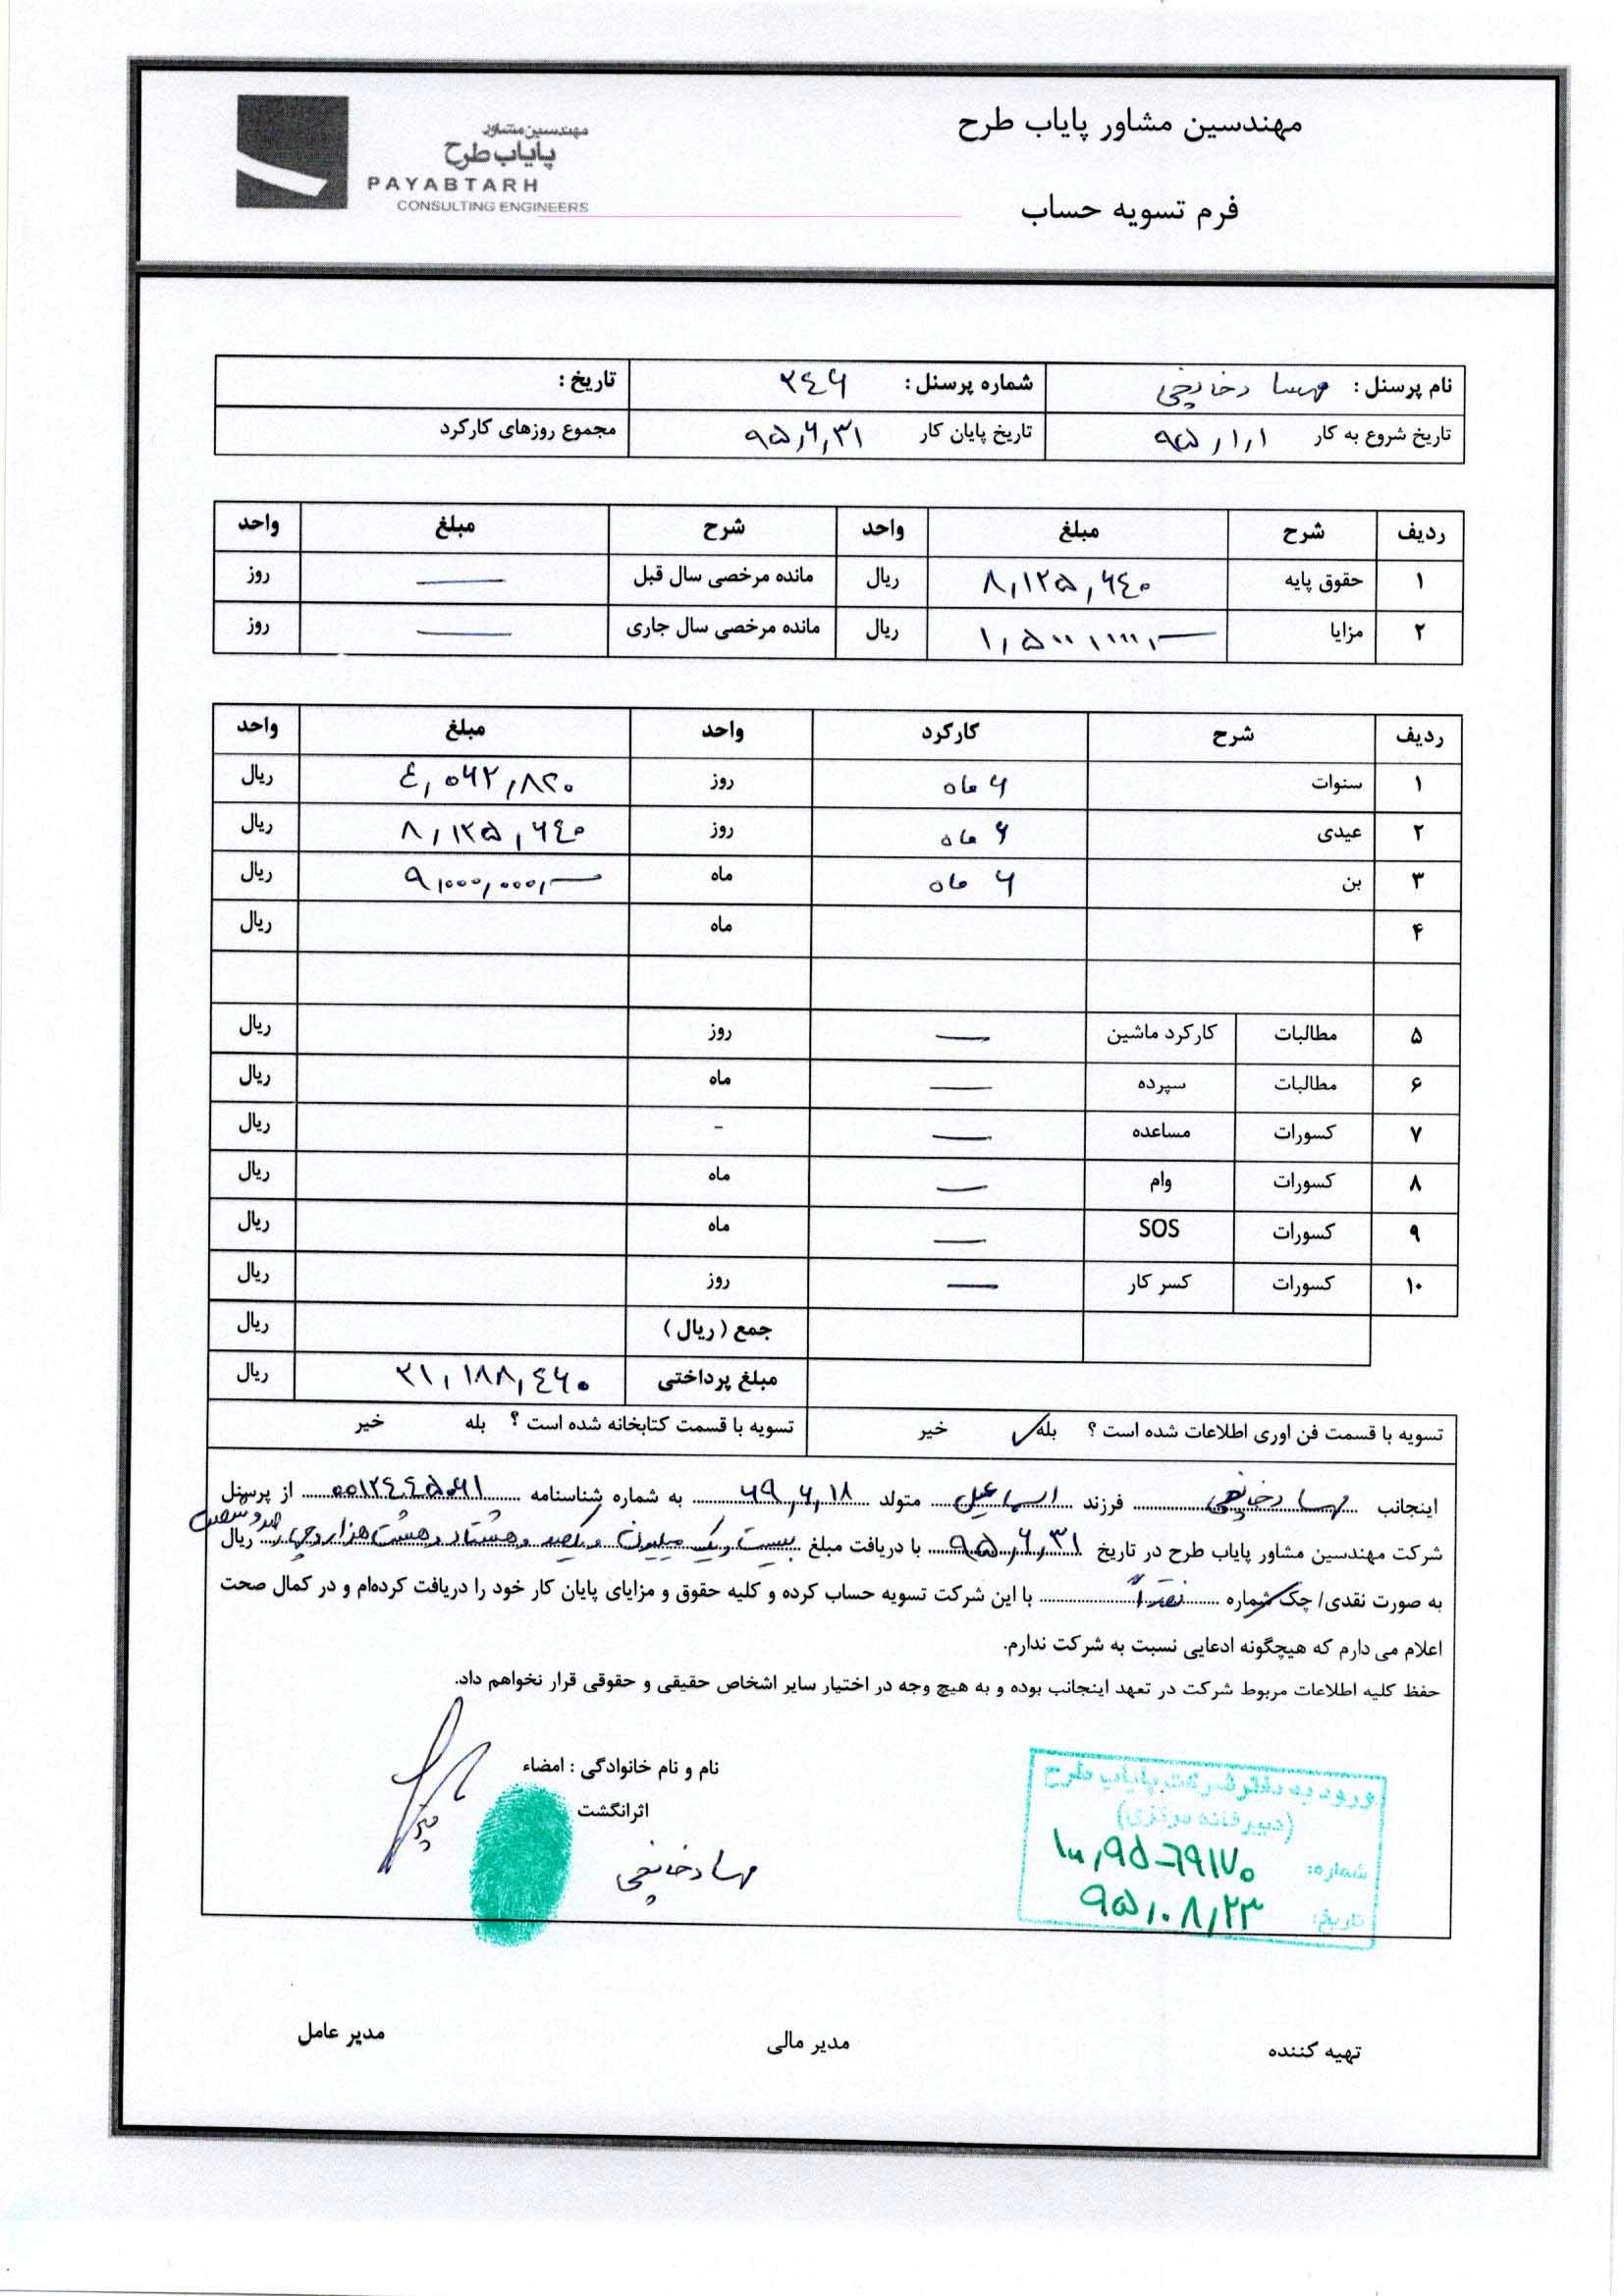 مهندسین مشاور پایاب طرح
مهندسین مشاور
پایاب طرح
PAYABTARH
CONSULTING ENGINEERS
فرم تسویه حساب
نام پرسنل : مهسا شماره پرسنل : ۳٤۶ تاریخ :
تاریخ شروع به کار ۹۵,۱,۱ تاریخ پایان کار ۹۵,۶,۳۱ مجموع روزهای کارکرد
ردیف شرح مبلغ واحد شرح مبلغ واحد
۱ حقوق پایه ۸,۱۲۵,۶٤۰ ریال مانده مرخصی سال قبل — روز
۲ مزایا ۱,۵۰۰,۰۰۰,— ریال مانده مرخصی سال جاری — روز
ردیف شرح کارکرد واحد مبلغ واحد
۱ سنوات ۶ ماه روز ٤,۰۶۲,۸۲۰ ریال
۲ عیدی ۶ ماه روز ۸,۱۲۵,۶٤۰ ریال
۳ بن ۶ ماه ماه ۹,۰۰۰,۰۰۰,— ریال
۴ ماه ریال
۵ مطالبات کارکرد ماشین — روز ریال
۶ مطالبات سپرده — ماه ریال
۷ کسورات مساعده — - ریال
۸ کسورات وام — ماه ریال
۹ کسورات SOS — ماه ریال
۱۰ کسورات کسر کار — روز ریال
جمع ( ریال ) ریال
مبلغ پرداختی ۲۱,۱۸۸,٤۶۰ ریال
تسویه با قسمت فن اوری اطلاعات شده است ؟ بله ✓ خیر تسویه با قسمت کتابخانه شده است ؟ بله خیر
اینجانب مهسا فرزند اسماعیل متولد ۶۹,۶,۱۸ به شماره شناسنامه ۰۰۱۲٤٤۵۰۶۱ از پرسنل
شرکت مهندسین مشاور پایاب طرح در تاریخ ۹۵,۶,۳۱ با دریافت مبلغ بیست و یک میلیون و یکصد و هشتاد و هشت هزار و چهارصد و شصت ریال
به صورت نقدی/ چک شماره نقداً با این شرکت تسویه حساب کرده و کلیه حقوق و مزایای پایان کار خود را دریافت کرده‌ام و در کمال صحت
اعلام می دارم که هیچگونه ادعایی نسبت به شرکت ندارم.
حفظ کلیه اطلاعات مربوط شرکت در تعهد اینجانب بوده و به هیچ وجه در اختیار سایر اشخاص حقیقی و حقوقی قرار نخواهم داد.
نام و نام خانوادگی : امضاء
اثرانگشت
مهسا
ورود به دفتر شرکت پایاب طرح
(دبیرخانه مرکزی)
شماره: ۹۵-۶۹۱۷۰
تاریخ: ۹۵,۰۸,۲۳
تهیه کننده مدیر مالی مدیر عامل